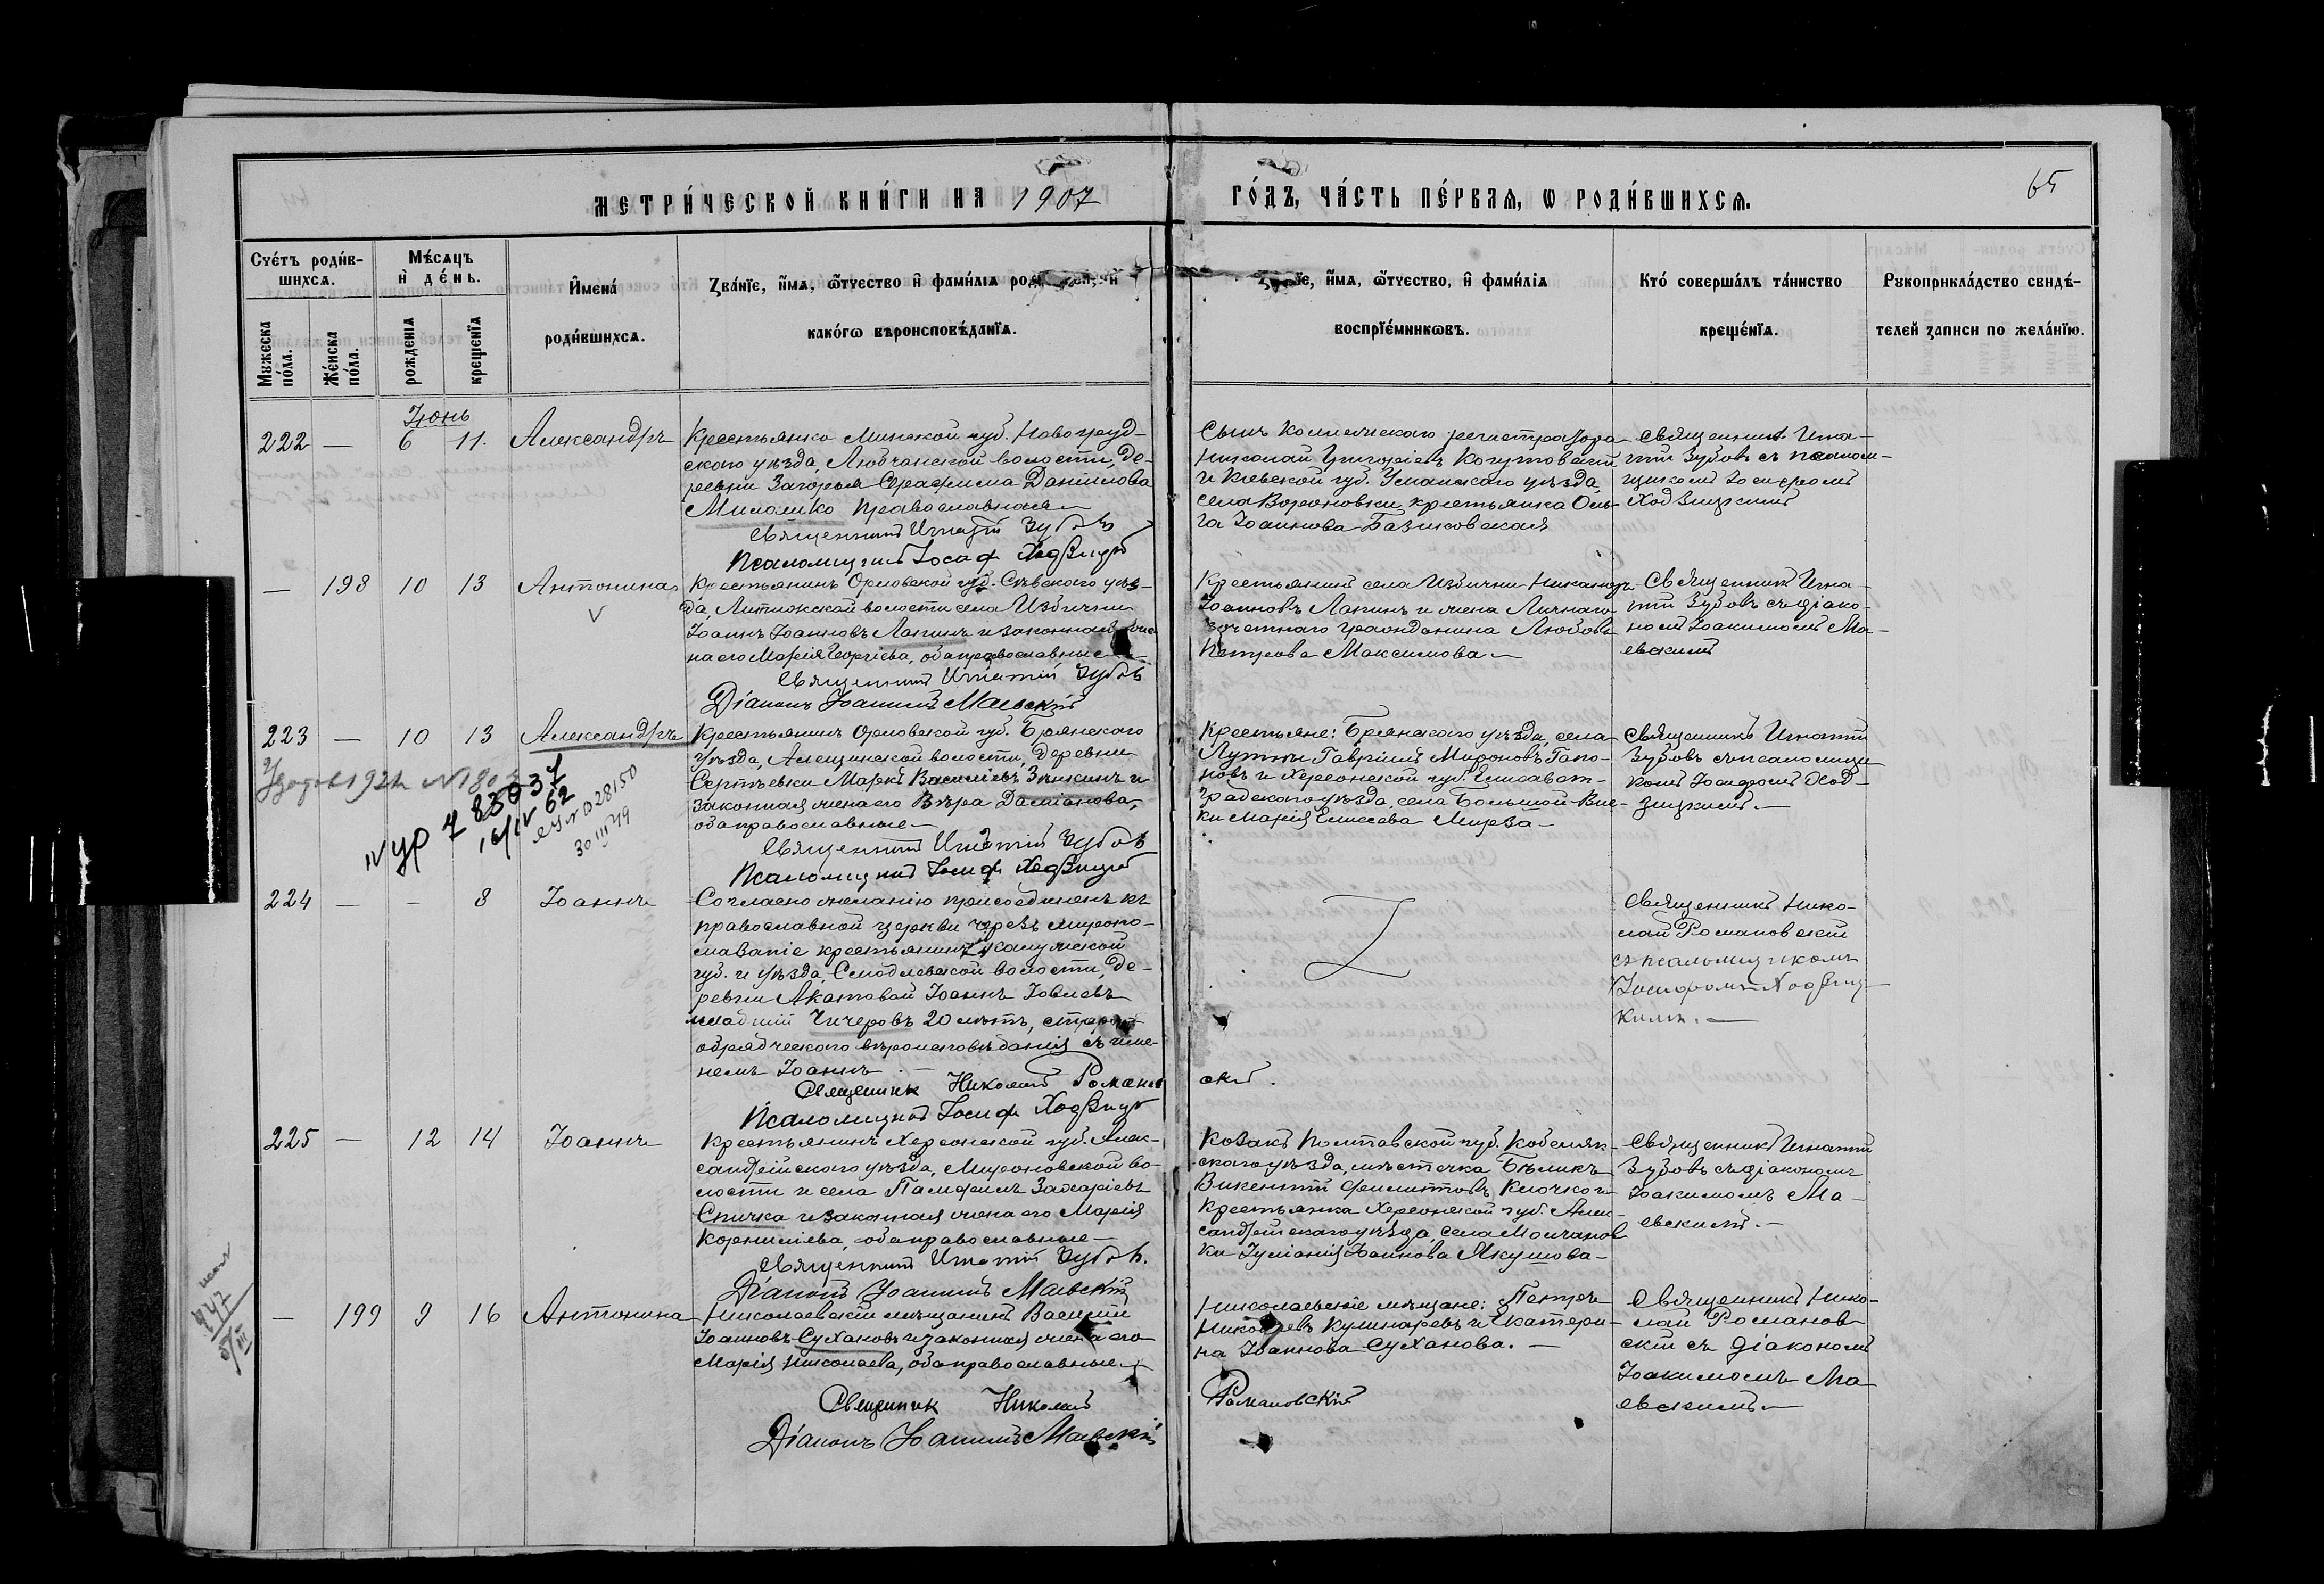 МЕТРИ́ЧЕСКОЙ КНИ́ГИ НА 1907
ГО́ДЪ, ЧА́СТЬ ПЕ́РВАѦ, Ѡ РОДИ́ВШИХСѦ.
65
Сче́тъ роди́в-
шихсѧ.
Мѣ́сѧцъ
и҆ де́нь.
Мꙋжеска
по́ла.
Же́нска
по́ла.
рожденїѧ
крещенїѧ
И҆мена́
роди́вшихсѧ.
Зва́нїе, и҆́мѧ, ѻ҆́тчество и҆ фами́лїѧ
како́гѡ вѣроисповѣ́данїѧ.
и҆́мѧ, ѻ҆́тчество, и҆ фами́лїѧ
воспрїе́мникѡвъ.
Кто́ соверша́лъ та́инство
креще́нїѧ.
Рꙋкоприкла́дство свидѣ́-
телей записи по жела́нїю.
Іюнь
222 — 6 11. Александръ
Крестьянка Минской губ. Новогруд-
скаго уѣзда, Любчанской волости, де-
ревни Загорья Серафима Данилова
Миломko православная
Священникъ Игнатій Зубовъ
Псаломщикъ Іосиф Ходзицкій
Сынъ Коллежскаго регистратора
Николай Григоріевъ Когутовскій
и Кіевской губ. Уманскаго уѣзда
села Вороновки, крестьянка Оль-
га Іоаннова Базиковская
Священникъ Игна-
тій Зубовъ съ псалом-
щикомъ Іосифомъ
Ходзицкимъ
— 198 10 13 Антонина
Крестьянинъ Орловской губ. Сѣвского уѣз-
да, Литижской волости села Избични
Іоаннъ Іоанновъ Лапинъ и законная же-
на его Марія Георгіева, оба православные
Священникъ Игнатій Зубовъ
Діаконъ Іоакимъ Маевскій
Крестьянинъ села Избични Никаноръ
Іоанновъ Лапинъ и жена Личнаго
Почетнаго гражданина Любовь
Петрова Максимова
Священникъ Игна-
тій Зубовъ съ діако-
номъ Іоакимомъ Ма-
евскимъ
223 — 10 13 Александръ
1924 N 1803
IV УР 783037
16/IV 62
028150
30 III 49
Крестьянинъ Орловской губ. Брянскаго
уѣзда, Алешинской волости, деревни
Маркъ Василіевъ Зыкинъ и
законная жена его Вѣра Даміанова,
оба православные
Священникъ Игнатій Зубовъ
Псаломщикъ Іосиф Ходзицкій
Крестьяне: Брянскаго уѣзда, села
Лутны Гавріилъ Мироновъ Гапо-
новъ и Херсонской губ. Елисавет-
градскаго уѣзда, села Большой Вис-
ки Марія Елисеева Мирза
Священникъ Игнатій
Зубовъ съ псаломщи-
комъ Іосифомъ Ход-
зицкимъ.
224 — - 8 Іоаннъ
Согласно желанію присоединенъ къ
православной церкви чрезъ мѵропо-
мазаніе крестьянинъ Калужской
губ. и уѣзда, Смодлевской волости, де-
ревни Акатовой Іоаннъ Іовлевъ
младшій Чичеровъ 20 лѣтъ, старо-
обрядческаго вѣроисповѣданія съ име-
немъ Іоаннъ.
Священникъ Николай Романов
скій.
Псаломщикъ Іосиф Ходзицкій
Священникъ Нико-
лай Романовскій
съ псаломщикомъ
Іосифомъ Ходзиц-
кимъ.
225 — 12 14 Іоаннъ
Крестьянинъ Херсонской губ. Алек-
сандрійскаго уѣзда, Мироновской во-
лости и села Памфилъ Захаріевъ
Спичка и законная жена его Марія
Корниліева, оба православные
Священникъ Игнатій Зубовъ.
Діаконъ Іоакимъ Маевскій
Козакъ Полтавской губ. Кобеляк-
скаго уѣзда, мѣстечка Бѣликъ
Викентій Филиповъ Клочко и
Крестьянка Херсонской губ. Алек-
сандрійскаго уѣзда, села Молчанов
ки Іуліанія Іоаннова Якушова
Священникъ Игнатій
Зубовъ съ діакономъ
Іоакимомъ Ма-
евскимъ.
— 199 9 16 Антонина
Николаевскій мѣщанинъ Василій
Іоанновъ Сухановъ и законная жена его
Марія Николаева, оба православные.
Священник Николай
Романовскій
Діаконъ Іоакимъ Маевскій
Николаевскіе мѣщане: Петръ
Кушнаревъ и Екатери-
на Іоаннова Суханова.
Священникъ Нико-
лай Романов-
скій съ діакономъ
Іоакимомъ Ма
евскимъ